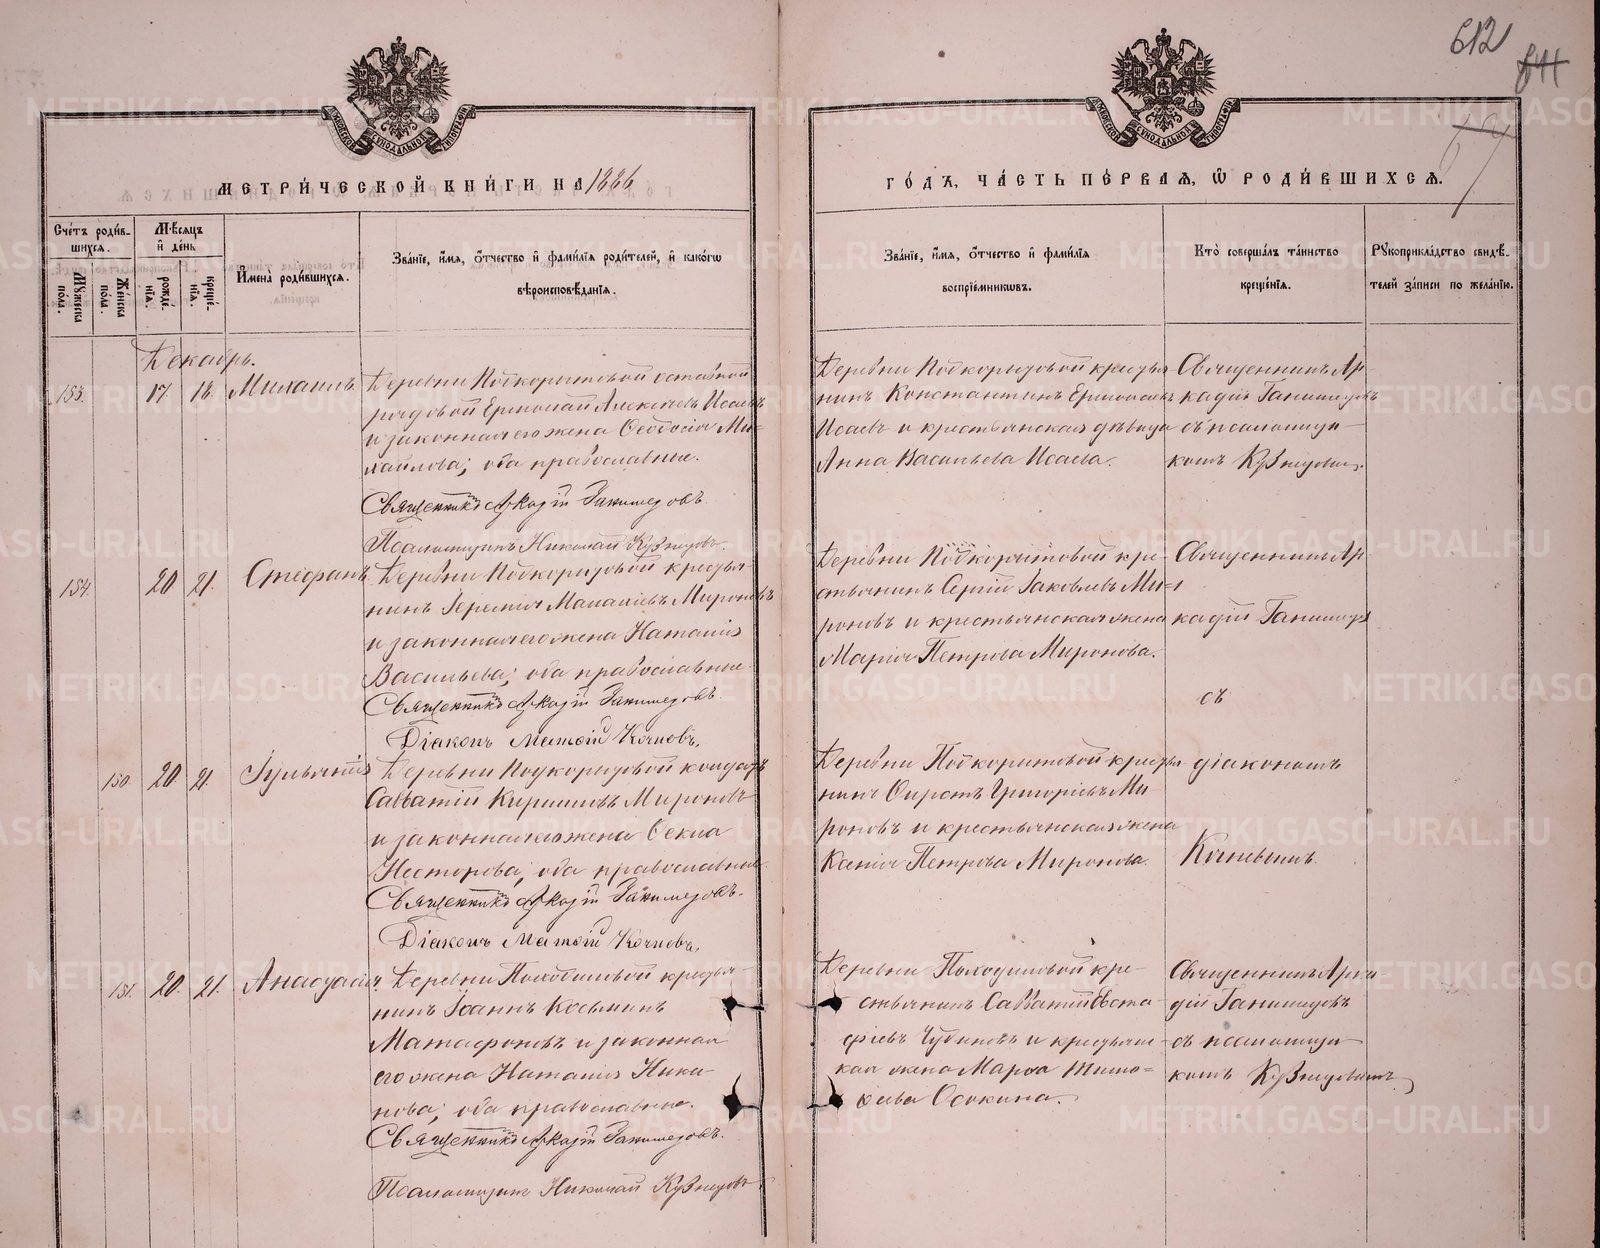 612
64
МЕТРИ́ЧЕСКОЙ КНИ́ГИ НА 1886
ГО́ДЪ, ЧА́СТЬ ПЕ́РВАЯ, Ѽ РОДИ́ВШИХСѦ.
Сче́тъ роди́вшихсѧ.
Му́жеска по́ла.
Же́нска по́ла.
Мѣ́сѧцъ и҆ де́нь
рожде́нїѧ.
креще́нїѧ.
И҆мена̀ роди́вшихсѧ.
Зва́нїе, и҆́мѧ, ѻ҆́тчество и҆ фами́лїѧ роди́телей, и҆ како́гѡ
вѣроисповѣ́данїѧ.
Зва́нїе, и҆́мѧ, ѻ҆́тчество и҆ фами́лїѧ
воспрїе́мникѡвъ.
Кто̀ соверша́лъ та́инство
креще́нїѧ.
Рꙋкоприкла́дство свидѣ́-
телей за́писи по жела́нїю.
Декабрь.
153. 17. 18. Михаилъ.
Деревни Подкорытовой отставной
рядовой Ермолай Алексѣевъ Исаевъ
и законная его жена Ѳеодосія Ми-
хайлова; оба православные.
Священникъ Аркадій Ганимедовъ.
Псаломщикъ Николай Кузнецовъ.
Деревни Подкорытовой крестья
нинъ Константинъ Ермолаевъ
Исаевъ и крестьянская дѣвица
Анна Васильева Исаева.
Священникъ Ар-
кадій Ганимедовъ
съ псаломщи-
комъ Кузнецовымъ.
154. 20 21. Стефанъ
Деревни Подкорытовой крестья-
нинъ
Мироновъ
и законная его жена Наталія
Васильева; оба православные.
Священникъ Аркадій Ганимедовъ.
Діаконъ Матѳій Кочневъ.
Деревни Подкорытовой кре-
стьянинъ Сергій Іаковлевъ Ми-
роновъ и крестьянская жена
Марія Петрова Миронова.
Священникъ Ар
кадій Ганимедо
съ
150. 20 21. Іуліанія
Деревни Подкорытовой солдатъ
Савватій Мироновъ
и законная его жена Ѳекла
Несторова, оба православные
Священникъ Аркадій Ганимедовъ.
Діаконъ Матѳій Кочневъ.
Деревни Подкорытовой крестья
нинъ Григорьевъ Ми-
роновъ и крестьянская жена
Ксенія Петрова Миронова.
діакономъ
Кочневымъ.
151. 20. 21. Анастасія
Деревни крестья-
нинъ Іоаннъ Косьминъ
Матафоновъ и законная
его жена Наталія Ники-
нова; оба православные.
Священникъ Аркадій Ганимедовъ.
Псаломщикъ Николай Кузнецовъ
Деревни кре-
стьянинъ Савватій Евста-
фіевъ и крестьянс-
кая жена Марѳа Тимо-
ѳеева Сокина.
Священникъ Арка
дій Ганимедовъ
съ псаломщи-
комъ Кузнецовымъ
METRIKI.GASO-URAL.RU